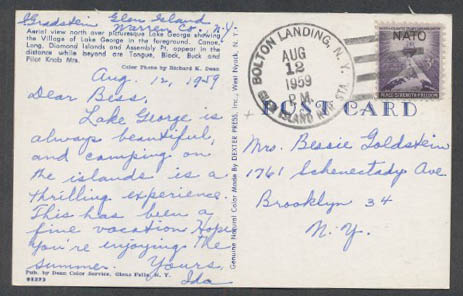 Gradstein Glen Island
Warren Co. N.Y.
Aerial view north over picturesque Lake George showing
the Village of Lake George in the foreground. Canoe,
Long, Diamond Islands and Assembly Pt. appear in the
distance while beyond are Tongue, Black, Buck and
Pilot Knob Mts.
Color Photo by Richard K. Dean
Aug. 12, 1959
Dear Bess,
Lake George is
always beautiful,
and camping on
the islands is a
thrilling experience.
This has been a
fine vacation Hope
you're enjoying the
summer. Yours,
Ida
Pub. by Dean Color Service, Glens Falls, N. Y.
Genuine Natural Color Made By DEXTER PRESS, Inc., West Nyack, N. Y.
BOLTON LANDING, N.Y.
AUG
12
1959
P.M.
GLEN ISLAND STA.
NATO
PEACE·STRENGTH·FREEDOM
POST CARD
Mrs. Bessie Goldstein
1761 Schenectady Ave
Brooklyn 34
N.Y.